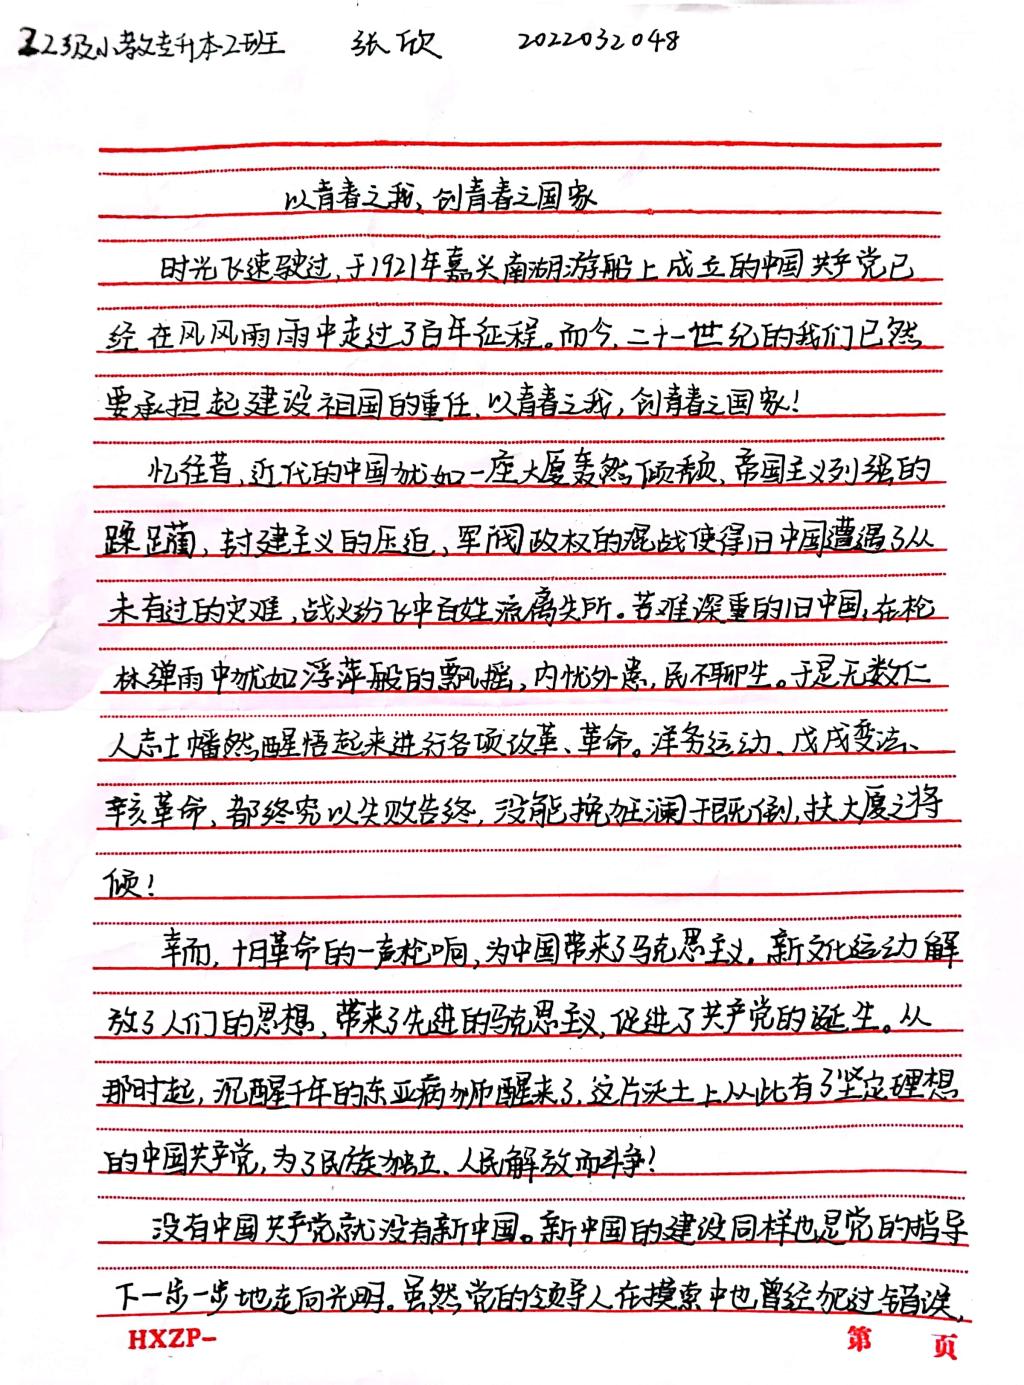 22级小教专升本2班 张欣 2022032048
以青春之我，创青春之国家
时光飞速驶过，于1921年嘉兴南湖游船上成立的中国共产党已
经在风风雨雨中走过了百年征程。而今，二十一世纪的我们已然
要承担起建设祖国的重任，以青春之我，创青春之国家！
忆往昔，近代的中国犹如一座大厦轰然倾颓，帝国主义列强的
蹂躏，封建主义的压迫，军阀政权的混战使得旧中国遭遇了从
未有过的灾难，战火纷飞中百姓流离失所。苦难深重的旧中国，在枪
林弹雨中犹如浮萍般的飘摇，内忧外患，民不聊生。于是无数仁
人志士幡然醒悟起来进行各项改革、革命。洋务运动、戊戌变法、
辛亥革命，都终究以失败告终，没能挽狂澜于既倒，扶大厦之将
倾！
幸而，十月革命的一声枪响，为中国带来了马克思主义。新文化运动解
放了人们的思想，带来了先进的马克思主义，促进了共产党的诞生。从
那时起，沉醒千年的东亚病狮醒来了，这片沃土上从此有了坚定理想
的中国共产党，为了民族独立、人民解放而斗争！
没有中国共产党就没有新中国。新中国的建设同样也是党的指导
下一步一步地走向光明。虽然党的领导人在摸索中也曾经犯过错误，
HXZP- 第 页